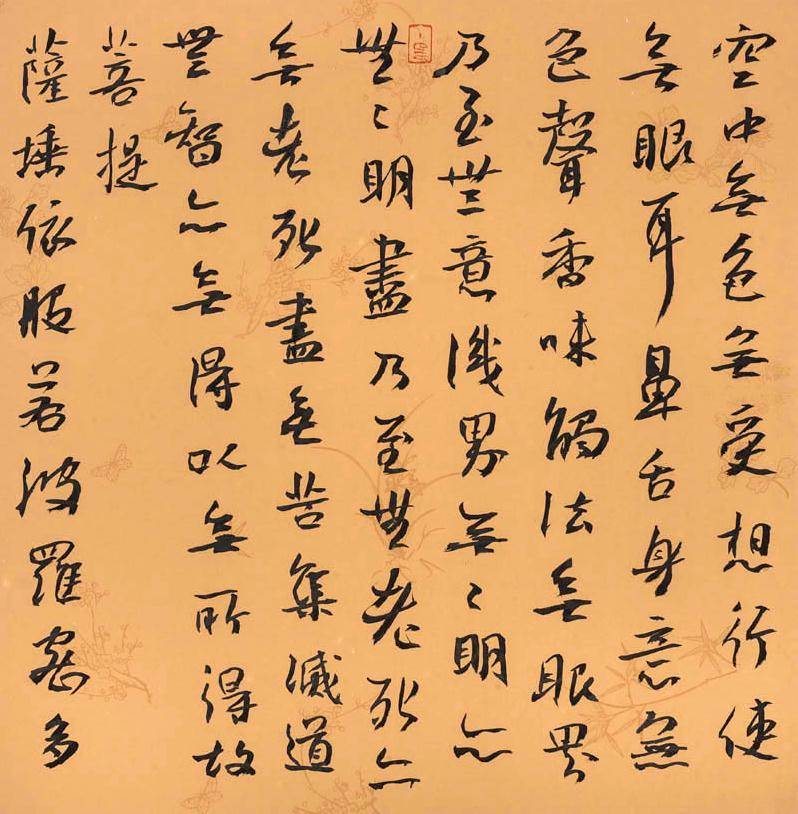 空中無色無受想行使
無眼耳鼻舌身意無
色聲香味觸法無眼界
乃至無意識界無〻明亦
無〻明盡乃至無老死亦
無老死盡無苦集滅道
無智亦無得以無所得故
菩提
薩埵依般若波羅密多